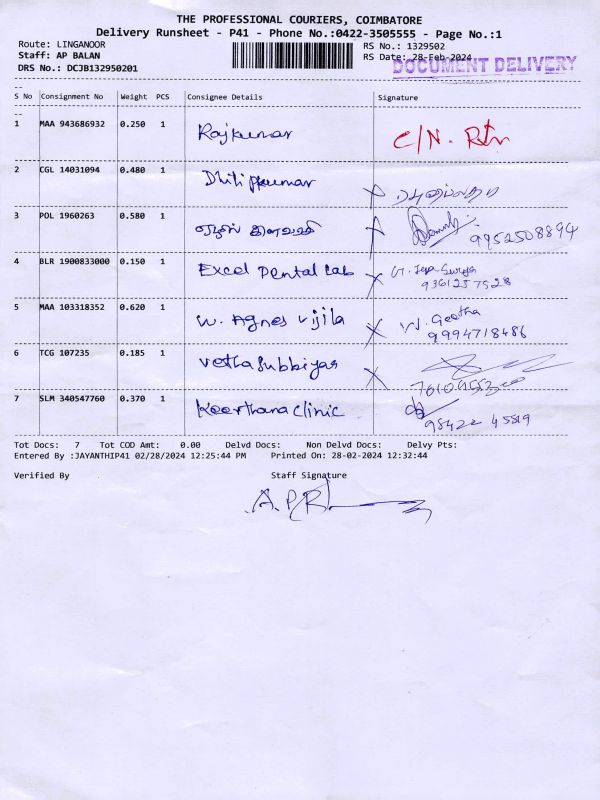 THE PROFESSIONAL COURIERS, COIMBATORE
Delivery Runsheet - P41 - Phone No.:0422-3505555 - Page No.:1
Route: LINGANOOR RS No.: 1329502
Staff: AP BALAN RS Date: 28-Feb-2024
DRS No.: DCJB132950201 DOCUMENT DELIVERY
S No Consignment No Weight PCS Consignee Details Signature
1 MAA 943686932 0.250 1 Rajkumar C/N. Rtn
2 CGL 14031094 0.480 1 Dhilipkumar
3 POL 1960263 0.580 1 9952508894
4 BLR 1900833000 0.150 1 Excel Dental Lab
9361257528
5 MAA 103318352 0.620 1 W. Agnes Vijila W. Geetha
9994718486
6 TCG 107235 0.185 1 Vethasubbiyar
7 SLM 340547760 0.370 1 Keerthana clinic
98422 45819
Tot Docs: 7 Tot COD Amt: 0.00 Delvd Docs: Non Delvd Docs: Delvy Pts:
Entered By :JAYANTHIP41 02/28/2024 12:25:44 PM Printed On: 28-02-2024 12:32:44
Verified By Staff Signature